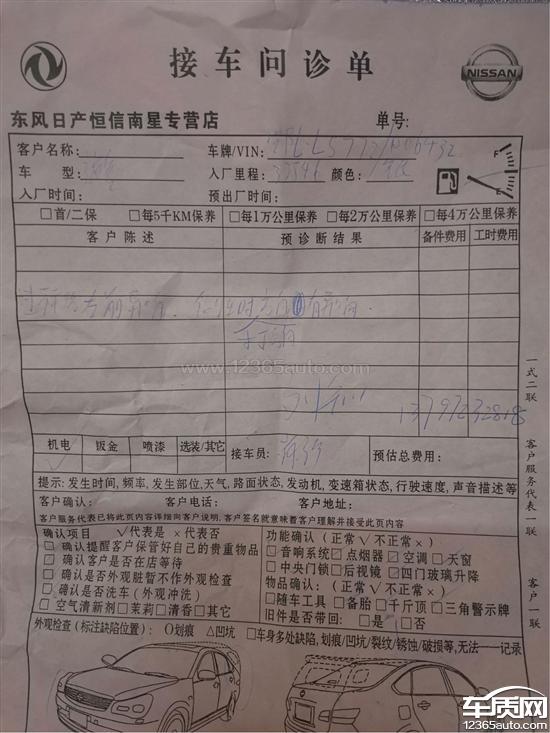 接车问诊单
NISSAN
东风日产恒信南星专营店 单号:
客户名称: 车牌/VIN:
车 型: 入厂里程: 颜色: F
入厂时间: 预出厂时间: E
□首/二保 □每5千KM保养 □每1万公里保养 □每2万公里保养 □每4万公里保养
客户陈述 预诊断结果 备件费用 工时费用
www.12365auto.com
13797232818
机电 钣金 喷漆 选装/其它 接车员: 预估总费用:
√
提示: 发生时间, 频率, 发生部位, 天气, 路面状态, 发动机, 变速箱状态, 行驶速度, 声音描述等
客户确认: 客户电话: 客户地址:
客户服务代表已将此页内容详细向客户说明, 客户签名就意味着客户理解并接受此页内容
确认项目 √代表是 ×代表否
□ 确认提醒客户保管好自己的贵重物品
□ 确认客户是否在店等待
□ 确认是否外观脏暂不作外观检查
□ 确认是否洗车 (外观冲洗)
□ 空气清新剂 □茉莉 □清香 □其它
功能确认 (正常√不正常×)
□音响系统 □点烟器 □空调 □天窗
□中央门锁 □后视镜 □四门玻璃升降
物品确认: (正常√不正常×)
□随车工具 □备胎 □千斤顶 □三角警示牌
旧件是否带回: □是 □否
外观检查 (标注缺陷位置): ○划痕 △凹坑 □车身多处缺陷, 划痕/凹坑/裂纹/锈蚀/破损等, 无法一一记录
一式二联 客户服务代表一联 客户一联
车质网
12365auto.com